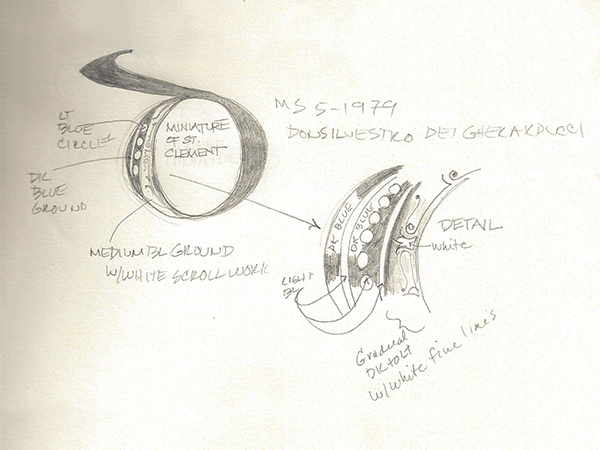 MS 5-1979
DON SILVESTRO DEI GHERARDUCCI
LT
BLUE
CIRCLES
MINIATURE
OF ST.
CLEMENT
DK
BLUE
GROUND
MEDIUM BL GROUND
W/WHITE SCROLL WORK
DK BLUE
DK BLUE
DETAIL
white
LIGHT
BL
Gradual
DK to LT
w/white fine lines